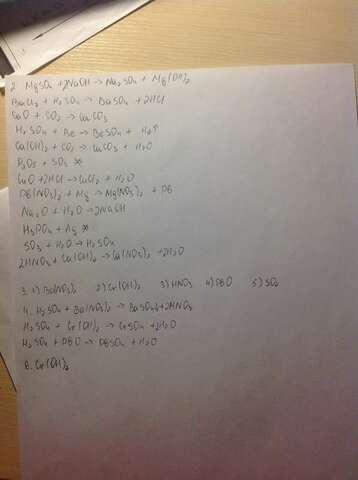 2. MgSO4 + 2NaOH → Na2SO4 + Mg(OH)2
BaCl2 + H2SO4 → BaSO4 + 2HCl
CaO + CO2 → CaCO3
H2SO4 + Be → BeSO4 + H2↑
Ca(OH)2 + CO2 → CaCO3 + H2O
P2O5 + SO3 ×
CuO + 2HCl → CuCl2 + H2O
PB(NO3)2 + Mg → Mg(NO3)2 + PB
Na2O + H2O → 2NaOH
H3PO4 + Ag ×
SO3 + H2O → H2SO4
2HNO3 + Ca(OH)2 → Ca(NO3)2 + 2H2O
3. 1) Ba(NO3)2 2) Cr(OH)2 3) HNO3 4) PBO 5) SO2
4. H2SO4 + Ba(NO3)2 → BaSO4↓ + 2HNO3
H2SO4 + Cr(OH)2 → CrSO4 + 2H2O
H2SO4 + PBO → PBSO4 + H2O
B. Cr(OH)2